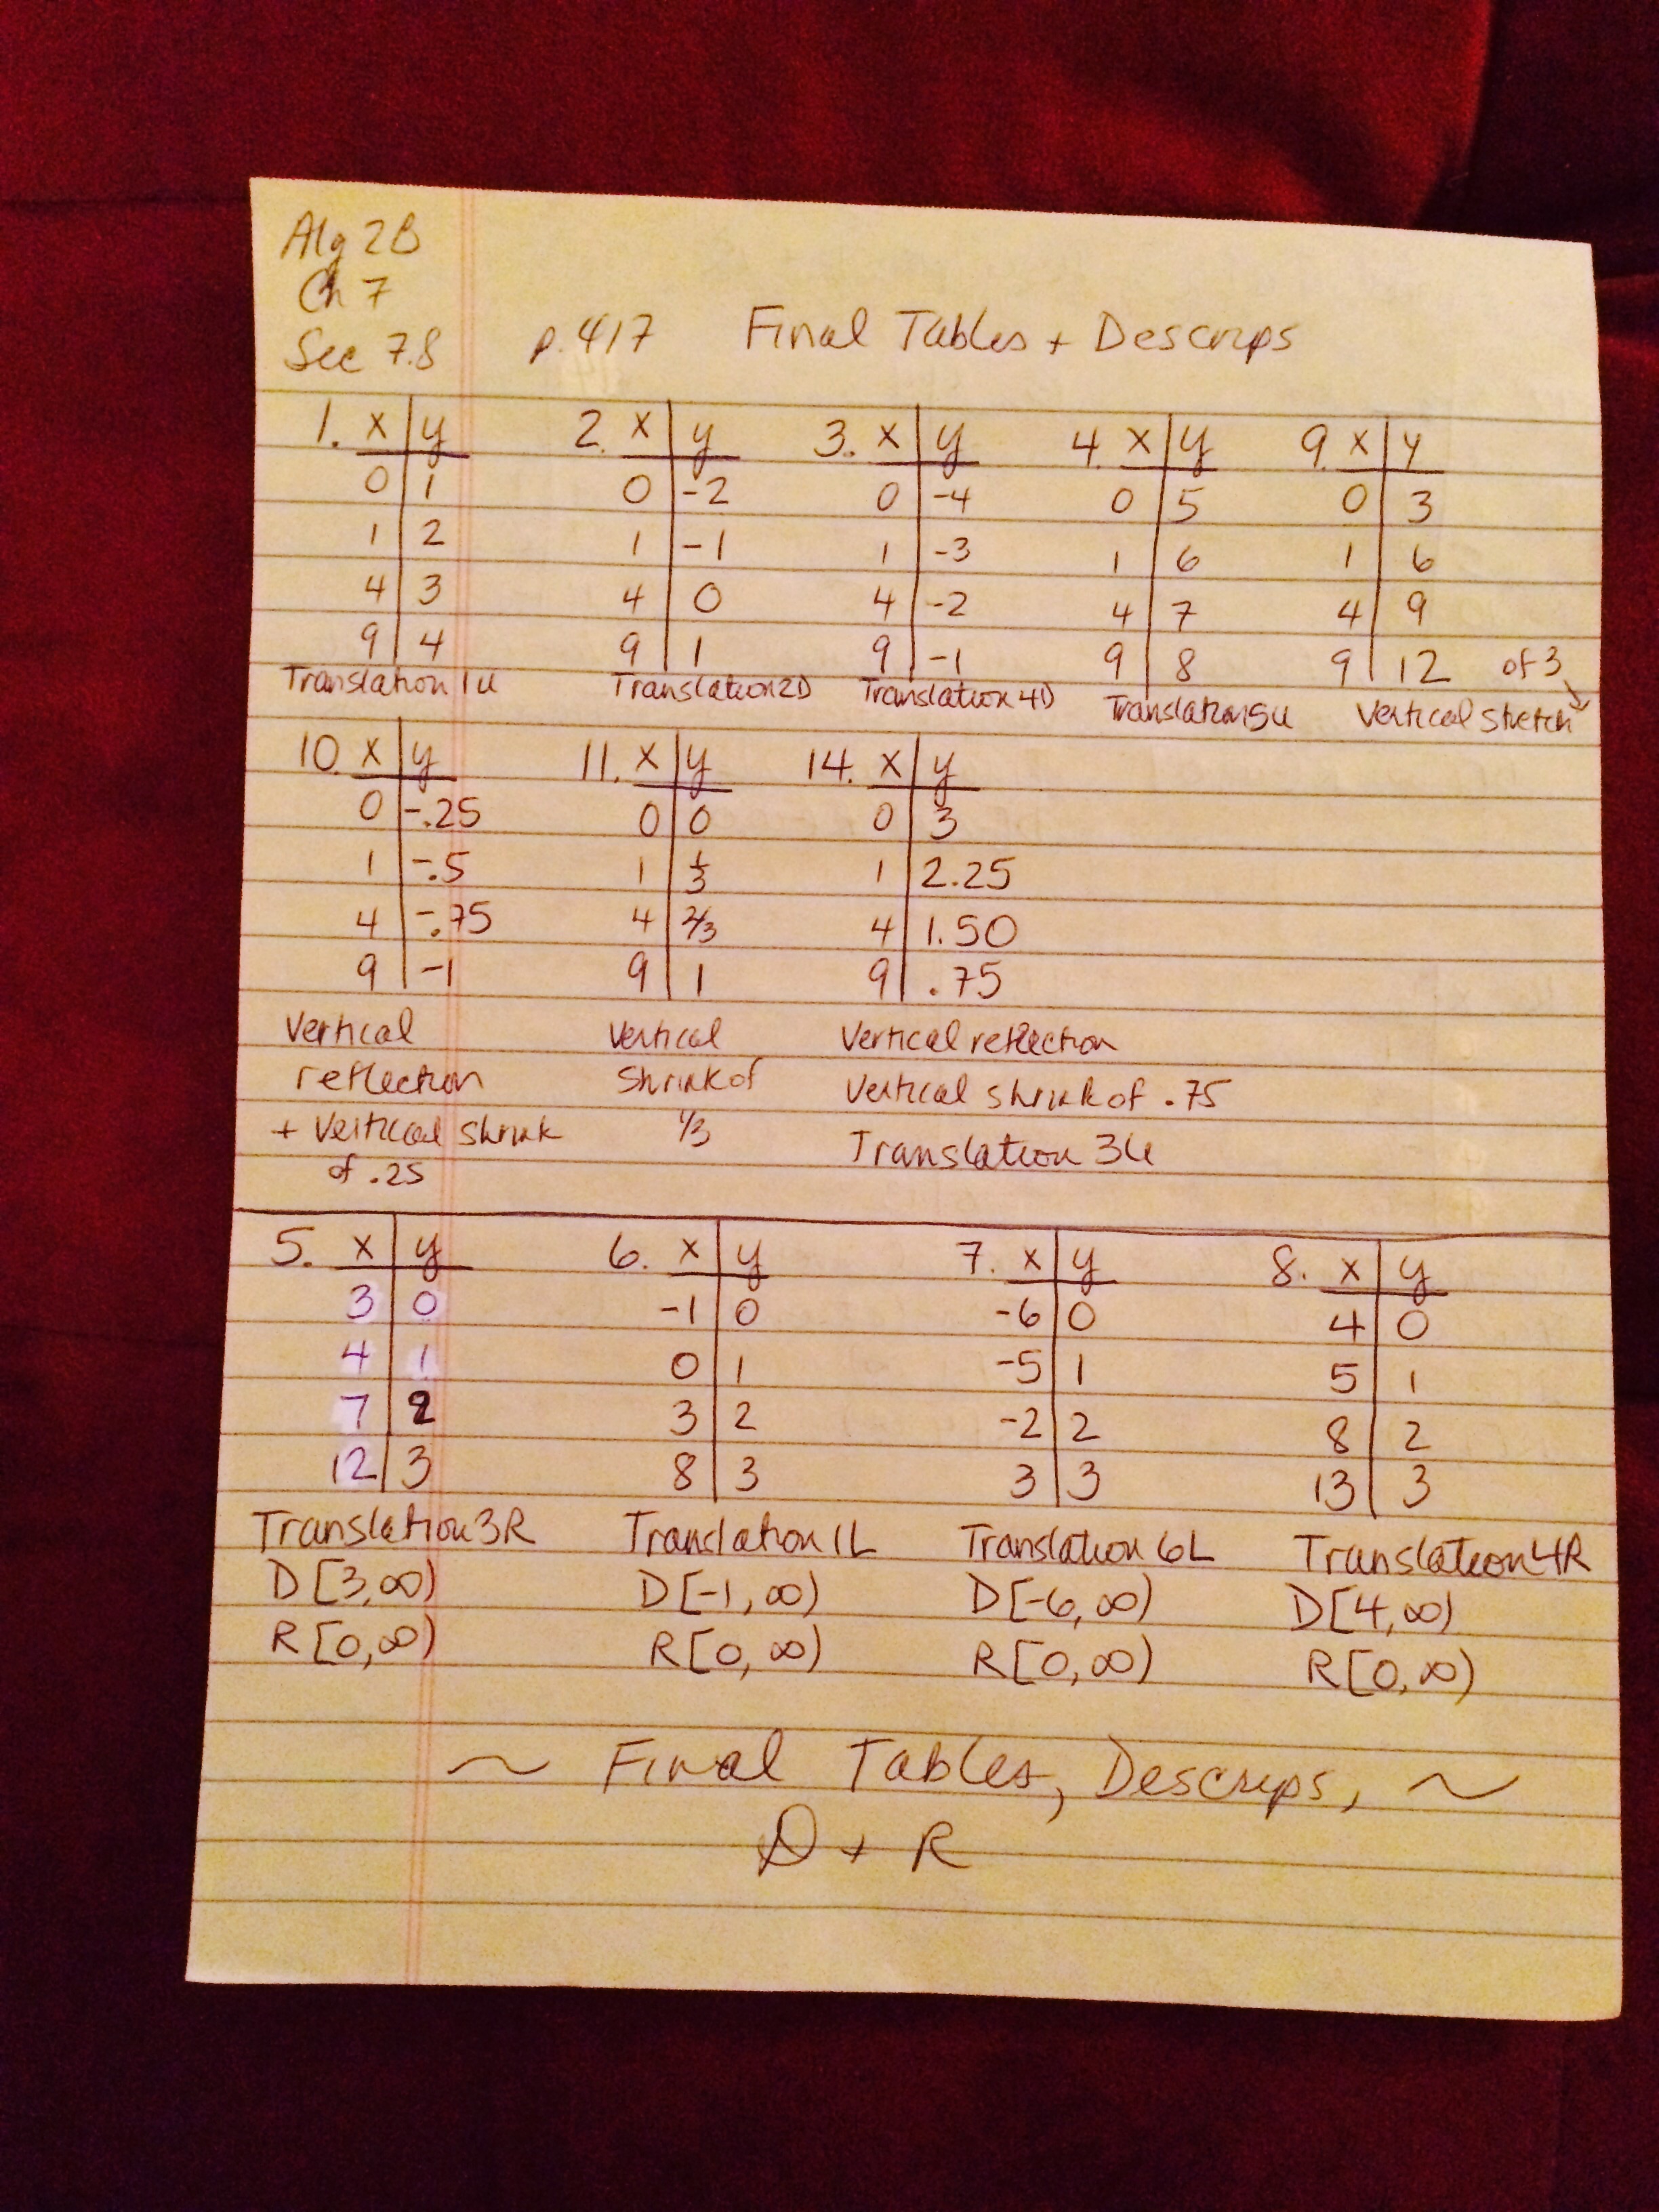 Alg 2B
Ch 7
Sec 7.8 p.417 Final Tables + Descrips
1. x y 2. x y 3. x y 4. x y 9. x y
0 1 0 -2 0 -4 0 5 0 3
1 2 1 -1 1 -3 1 6 1 6
4 3 4 0 4 -2 4 7 4 9
9 4 9 1 9 -1 9 8 9 12 of 3
Translation 1u Translation 2D Translation 4D Translation 5u Vertical stretch
10. x y 11. x y 14. x y
0 -.25 0 0 0 3
1 -.5 1 1/3 1 2.25
4 -.75 4 2/3 4 1.50
9 -1 9 1 9 .75
Vertical Vertical Vertical reflection
reflection shrink of Vertical shrink of .75
+ Vertical shrink 1/3 Translation 3u
of .25
5. x y 6. x y 7. x y 8. x y
3 0 -1 0 -6 0 4 0
4 1 0 1 -5 1 5 1
7 2 3 2 -2 2 8 2
12 3 8 3 3 3 13 3
Translation 3R Translation 1L Translation 6L Translation 4R
D [3,∞) D[-1,∞) D[-6,∞) D[4,∞)
R [0,∞) R[0,∞) R[0,∞) R[0,∞)
~ Final Tables, Descrips, ~
D + R